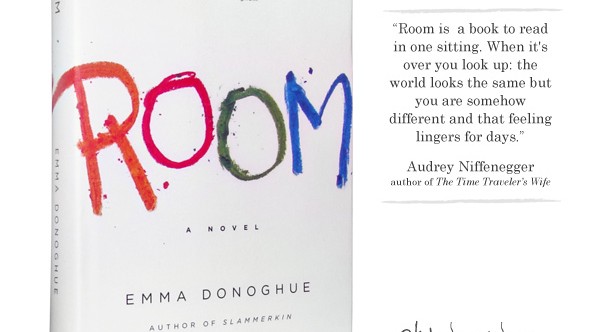 ROOM
A NOVEL
EMMA DONOGHUE
AUTHOR OF SLAMMERKIN
EMMA DONOGHUE
“Room is a book to read
in one sitting. When it's
over you look up: the
world looks the same but
you are somehow
different and that feeling
lingers for days.”
Audrey Niffenegger
author of The Time Traveler's Wife